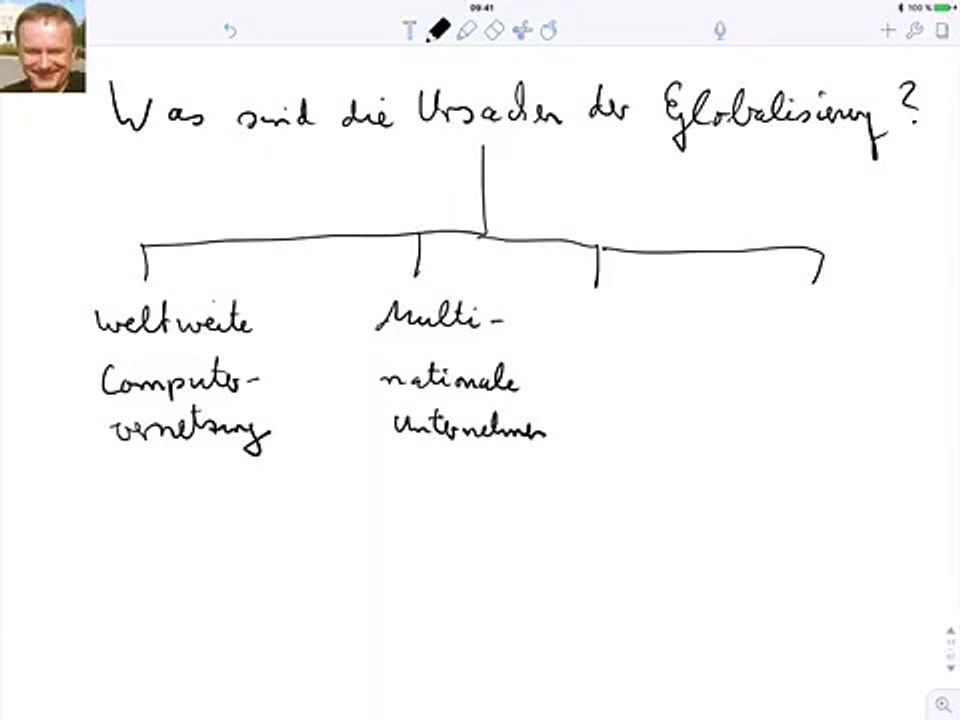 09:41
100 %
T
Was sind die Ursachen der Globalisierung?
weltweite
Computer-
vernetzung
Multi-
nationale
Unternehmen